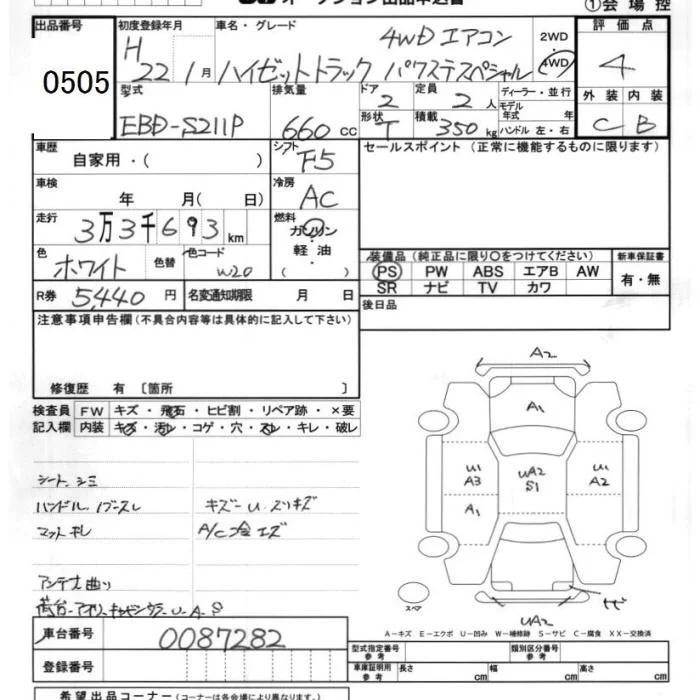 ①会場控
出品番号 初度登録年月 車名・グレード 2WD 評価点
0505 H 22 1月 4WD エアコン ハイゼットトラック パワステスペシャル 4WD 4
型式 排気量 ドア 定員 ディーラー・並行 外装 内装
EBD-S211P 660cc 2 2人 モデル年式 年 C B
形状 T 積載 350kg ハンドル 左・右
車歴 シフト セールスポイント(正常に機能するものに限ります)
自家用・( ) F5
車検 冷房
年 月(日) AC
走行 燃料
3万3千693km ガソリン
軽油
・( )
色 色替 色コード 装備品(純正品に限り○をつけてください) 新車保証書
ホワイト W20 PS PW ABS エアB AW 有・無
SR ナビ TV カワ
R券 5,440円 名変通知期限 月 日 後日品
注意事項申告欄(不具合内容等は具体的に記入して下さい)
修復歴 有 [箇所 ]
検査員 FW キズ・飛石・ヒビ割・リペア跡・×要
記入欄 内装 キズ・汚レ・コゲ・穴・スレ・キレ・破レ
シート、シミ
ハンドル、ノブスレ キズーU.スリキズ
A/C
アンテナ曲り
U.A.S
A2
A1
U1 A3 UA2 S1 U1 A2
A1
スペア
UA2
A-キズ E-エクボ U-凹み W-補修跡 S-サビ C-腐食 XX-交換済
車台番号 0087282 型式指定番号 参考 類別区分番号 参考
登録番号 車庫証明用 参考 長さ cm 幅 cm 高さ cm
希望出品コーナー(コーナーは各会場により異なります)